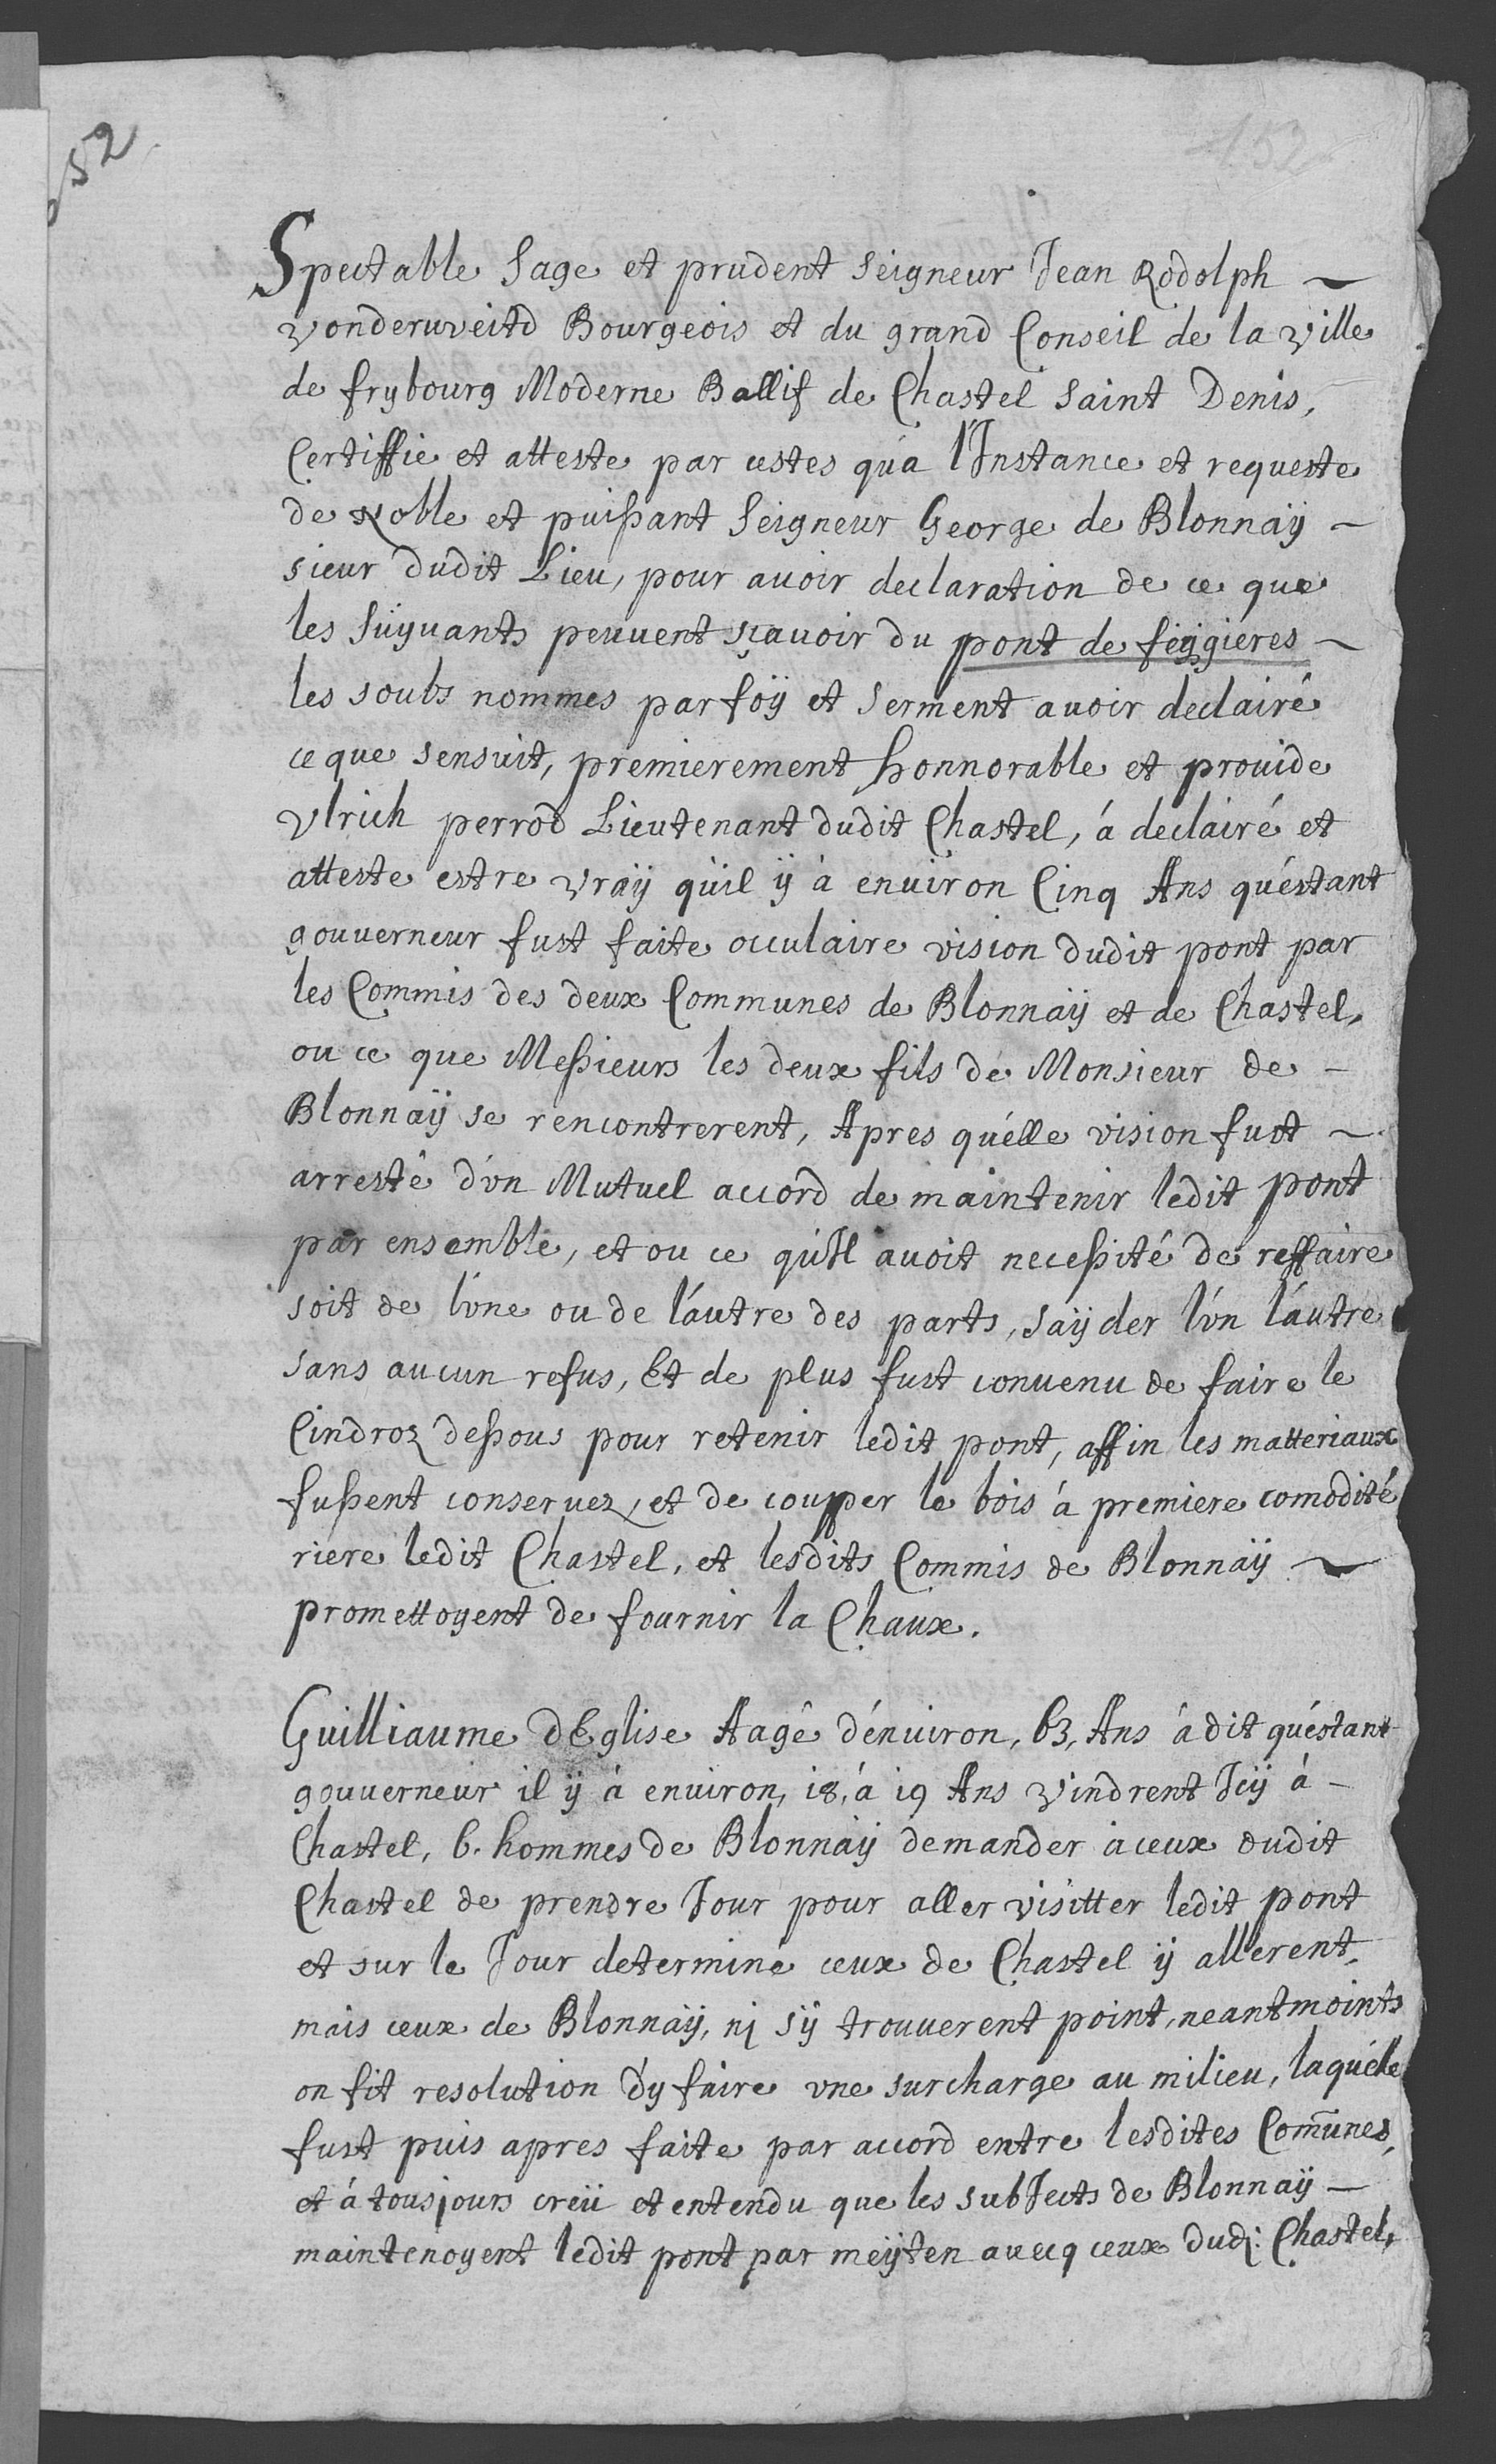 152
Spectable Sage et prudent Seigneur Jean Rodolph ~
vonderuveitd Bourgeois et du grand Conseil de la ville
de frybourg Moderne Ballif de Chastel Saint Denis,
Certiffie et atteste par cestes qu'a l'Instance et requeste
de Noble et puißant Seigneur George de Blonnaÿ -
sieur dudit Lieu, pour auoir declaration de ce que
les Suÿuants peuuent sçauoir du pont de feÿgieres ~
les soubs nommes par foÿ et Serment auoir declairé
ce que sensuit, premierement honnorable et prouide
Vlrich perrod Lieutenant dudit Chastel, á declairé et
atteste estre vraÿ qu'il ÿ à enuiron Cinq Ans qu'éstant
gouuerneur fust faite occulaire vision dudit pont par
les Commis des deux Communes de Blonnaÿ et de Chastel,
ou ce que Meßieurs les deux fils de Monsieur de -
Blonnaÿ se rencontrerent, Apres qu'élle vision fust ~
arresté d'vn Mutuel accord de maintenir ledit pont
par ensemble, et ou ce qu'Il auoit neceßité de reffaire
soit de l'vne ou de láutre des parts, saÿder l'vn láutre
sans aucun refus, Et de plus fust conuenu de faire le
Cindroz deßous pour retenir ledit pont, affin les matteriaux
fußent conseruez, et de coupper le bois á premiere comodité
riere ledit Chastel, et lesdits Commis de Blonnaÿ ~
promettoyent de fournir la Chaux.
Guilliaume dEglise Aagé d'énuiron, 63, Ans á dit qu'éstant
gouuerneur il ÿ à enuiron, 18, á 19 Ans vindrent Icÿ á -
Chastel, 6. hommes de Blonnaÿ demander à ceux dudit
Chastel de prendre Jour pour aller visitter ledit pont
et sur le Jour determiné ceux de Chastel ÿ allerent,
mais ceux de Blonnaÿ, nj sÿ trouuerent point, neantmoints
on fit resolution d'y faire vne surcharge au milieu, laquélle
fust puis apres faite par accord entre lesdites Com̃unes,
et á tousjours creü et entendu que les subJects de Blonnaÿ -
maintenoyent ledit pont par meÿten auecq ceux dudj: Chastel,